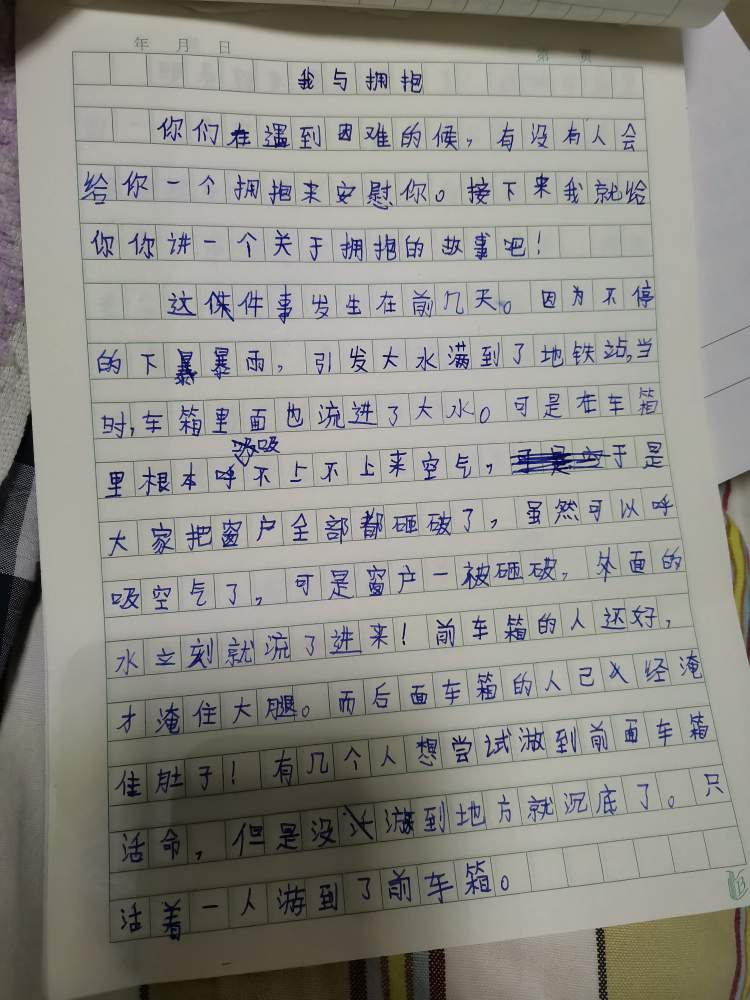 年 月 日 第 页
我与拥抱
你们在遇到困难的候，有没有人会
给你一个拥抱来安慰你。接下来我就给
你你讲一个关于拥抱的故事吧！
这件事发生在前几天。因为不停
的下暴雨，引发大水满到了地铁站，当
时，车箱里面也流进了大水。可是在车箱
里根本呼吸不上不上来空气，于是
大家把窗户全部都砸破了，虽然可以呼
吸空气了，可是窗户一被砸破，外面的
水立刻就流了进来！前车箱的人还好，
才淹住大腿。而后面车箱的人已经淹
住肚子！有几个人想尝试游到前面车箱
活命，但是没游到地方就沉底了。只
活着一人游到了前车箱。